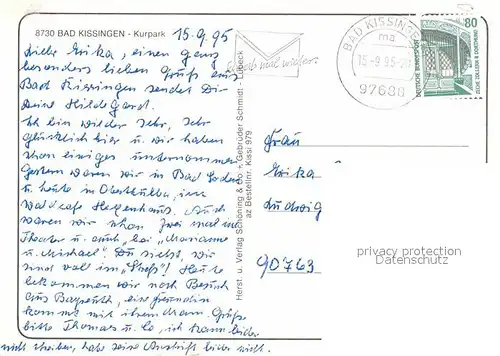 8730 BAD KISSINGEN - Kurpark
15.9.95
Liebe Erika, einen ganz
besonders lieben Gruß aus
Bad Kissingen sendet Dir
Deine Hildegard.
Ich bin wieder sehr, sehr
glücklich hier u. wir haben
schon einiges unternommen
Gestern waren wir in Bad
u. heute in Oberthulba, im
Waldcafe Hexenhaus. Auch
waren wir schon zwei mal im
Theater u. auch bei "Marianne
u. Michael". Du siehst, wir
sind voll im "Streß"! Heute
bekommen wir noch Besuch
aus Bayreuth, eine Freundin
kommt mit ihrem Mann. Grüße
bitte Thomas u. ich kann leider
nicht schreiben, habe seine Anschrift leider nicht.
Herst. u. Verlag Schöning & Co. + Gebrüder Schmidt - Lübeck
az Bestellnr. Kissi 979
Schreib mal wieder.
BAD KISSINGEN
ma
15-9.95-20
97688
80
DEUTSCHE BUNDESPOST
ZECHE ZOLLERN II DORTMUND
Frau
Erika
Ludwig
90763
privacy protection
Datenschutz